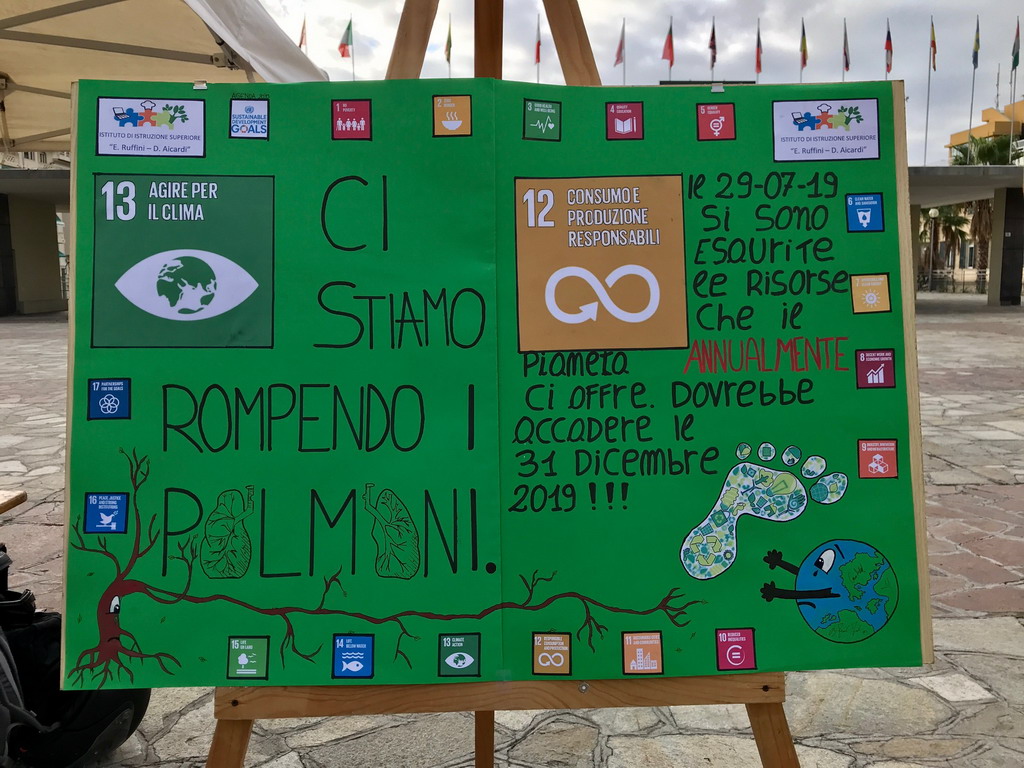 AGENDA 2030
ISTITUTO DI ISTRUZIONE SUPERIORE
"E. Ruffini – D. Aicardi"
SUSTAINABLE
DEVELOPMENT
GOALS
1 NO
POVERTY
2 ZERO
HUNGER
3 GOOD HEALTH
AND WELL-BEING
4 QUALITY
EDUCATION
5 GENDER
EQUALITY
ISTITUTO DI ISTRUZIONE SUPERIORE
"E. Ruffini – D. Aicardi"
13 AGIRE PER
IL CLIMA
CI
STIAMO
ROMPENDO I
POLMONI.
12 CONSUMO E
PRODUZIONE
RESPONSABILI
le 29-07-19
Si SONO
ESAURITE
le RISORSE
CHE il
PIANETA ANNUALMENTE
Ci OFFRE. DOVREBBE
ACCADERE le
31 DICEMBRE
2019 !!!
6 CLEAN WATER
AND SANITATION
7
8 DECENT WORK AND
ECONOMIC GROWTH
9 INDUSTRY, INNOVATION
AND INFRASTRUCTURE
17 PARTNERSHIPS
FOR THE GOALS
16 PEACE, JUSTICE
AND STRONG
INSTITUTIONS
15 LIFE
ON LAND
14 LIFE
BELOW WATER
13 CLIMATE
ACTION
12 RESPONSIBLE
CONSUMPTION
AND PRODUCTION
11 SUSTAINABLE CITIES
AND COMMUNITIES
10 REDUCED
INEQUALITIES